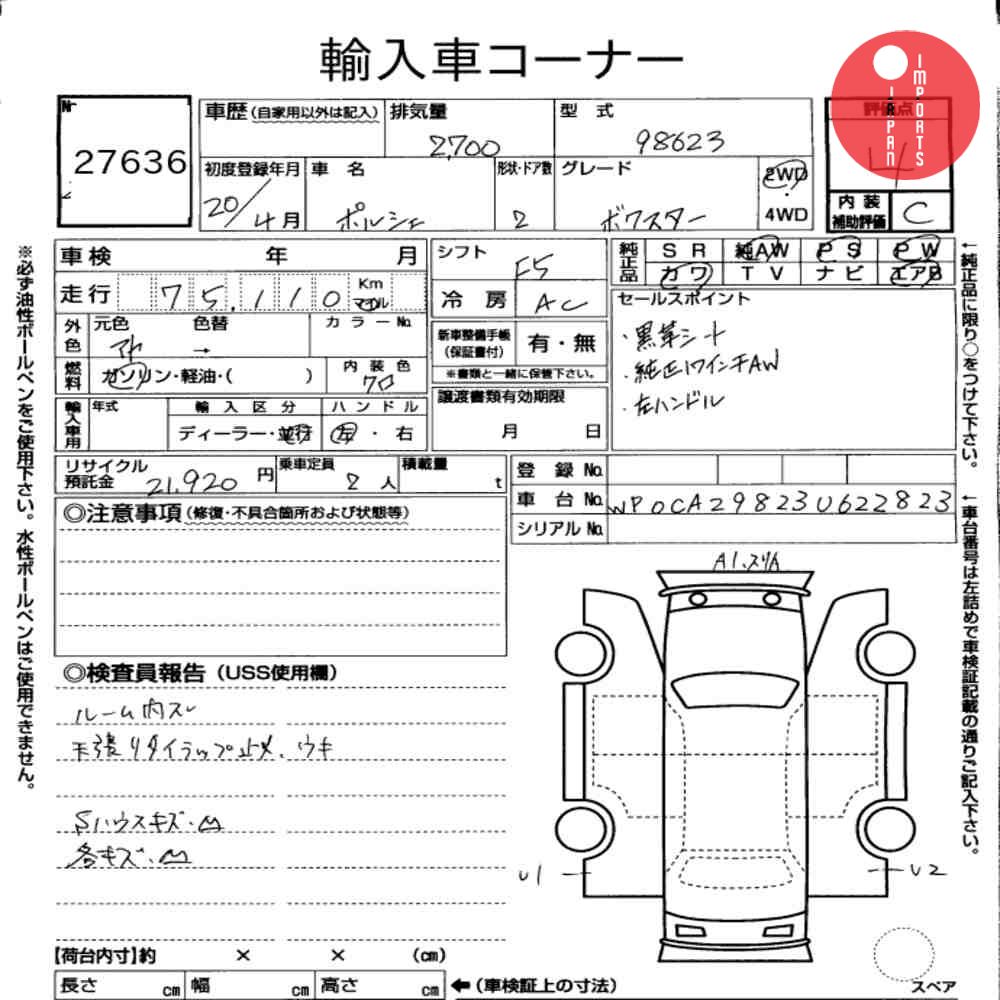 輸入車コーナー
JAPAN IMPORTS
№
27636
車歴 (自家用以外は記入)
排気量
2,700
型 式
98623
評価点
4
初度登録年月
20/4月
車 名
ポルシェ
形状・ドア数
2
グレード
ボクスター
2WD
・
4WD
内装補助評価
C
車検 年 月
走行 75,110 Km マイル
外色
元色
色替
→
カラーNo.
燃料
ガソリン・軽油・( )
内装色
クロ
輸入車用
年式
輸入区分
ディーラー・並行
ハンドル
左・右
シフト
F5
冷房
AC
新車整備手帳(保証書付)
有・無
※書類と一緒に保管下さい。
譲渡書類有効期限
月 日
純正品
SR 純AW PS PW
カワ TV ナビ エアB
セールスポイント
・黒革シート
・純正17インチAW
・左ハンドル
リサイクル預託金
21,920 円
乗車定員
2 人
積載量
t
登録 No.
車台 No.
WP0CA29823U622823
シリアル No.
◎注意事項 (修復・不具合箇所および状態等)
◎検査員報告 (USS使用欄)
ルーム内スレ
天張りタイラップ止メ、ウキ
Sハウスキズ・凹
各キズ・凹
A1、スリ
U1
U2
スペア
【荷台内寸】約 × × (cm)
長さ cm 幅 cm 高さ cm
←(車検証上の寸法)
※必ず油性ボールペンをご使用下さい。水性ボールペンはご使用できません。
←純正品に限り○をつけて下さい。
←車台番号は左詰めで車検証記載の通りご記入下さい。